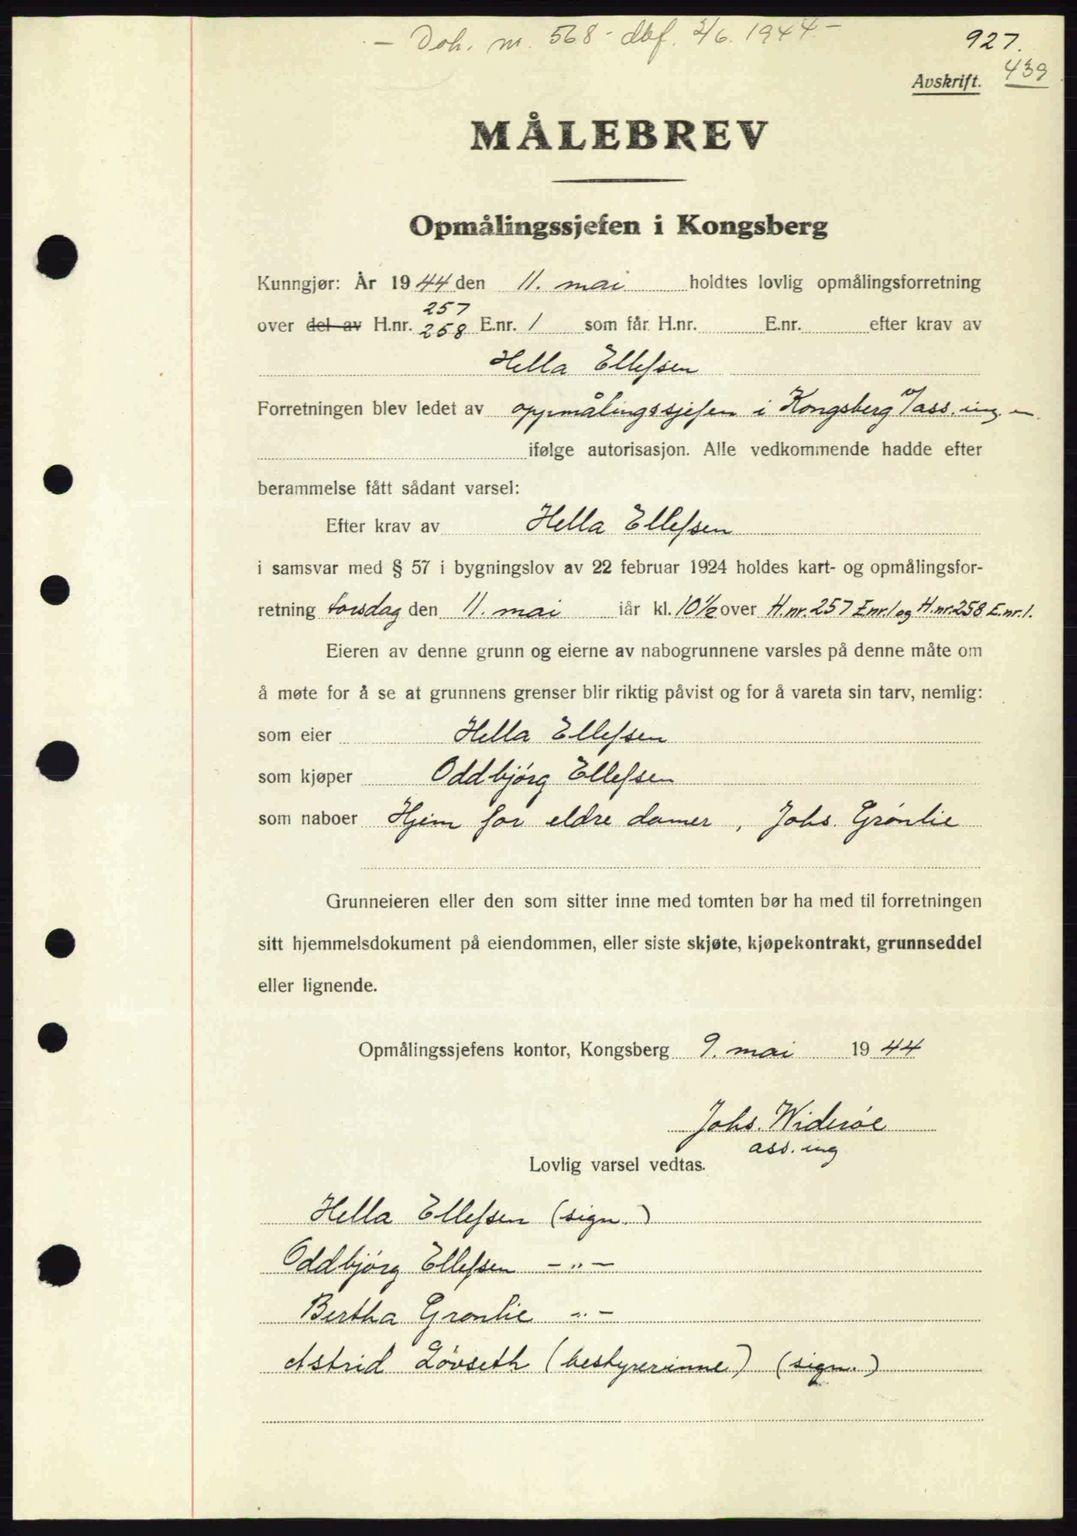 - Dok. nr. 568 - dbf. 2/6. 1944. -
927.
439
Avskrift.
MÅLEBREV
Opmålingssjefen i Kongsberg
Kunngjør: År 1944 den 11. mai holdtes lovlig opmålingsforretning
257
over del av H.nr. 258 E.nr. 1 som får H.nr. E.nr. efter krav av
Hella Ellefsen
Forretningen blev ledet av oppmålingssjefen i Kongsberg v/ass. ing.
ifølge autorisasjon. Alle vedkommende hadde efter
berammelse fått sådant varsel:
Efter krav av Hella Ellefsen
i samsvar med § 57 i bygningslov av 22 februar 1924 holdes kart- og opmålingsfor-
retning torsdag den 11. mai iår kl. 10½ over H.nr. 257 E.nr. 1 og H.nr. 258 E.nr. 1.
Eieren av denne grunn og eierne av nabogrunnene varsles på denne måte om
å møte for å se at grunnens grenser blir riktig påvist og for å vareta sin tarv, nemlig:
som eier Hella Ellefsen
som kjøper Oddbjørg Ellefsen
som naboer Hjem for eldre damer, Johs. Grønlie
Grunneieren eller den som sitter inne med tomten bør ha med til forretningen
sitt hjemmelsdokument på eiendommen, eller siste skjøte, kjøpekontrakt, grunnseddel
eller lignende.
Opmålingssjefens kontor, Kongsberg 9. mai 1944
Johs. Widerøe
ass. ing
Lovlig varsel vedtas.
Hella Ellefsen (sign.)
Oddbjørg Ellefsen - " -
Bertha Grønlie - " -
Astrid Løvseth (bestyrerinne) (sign.)